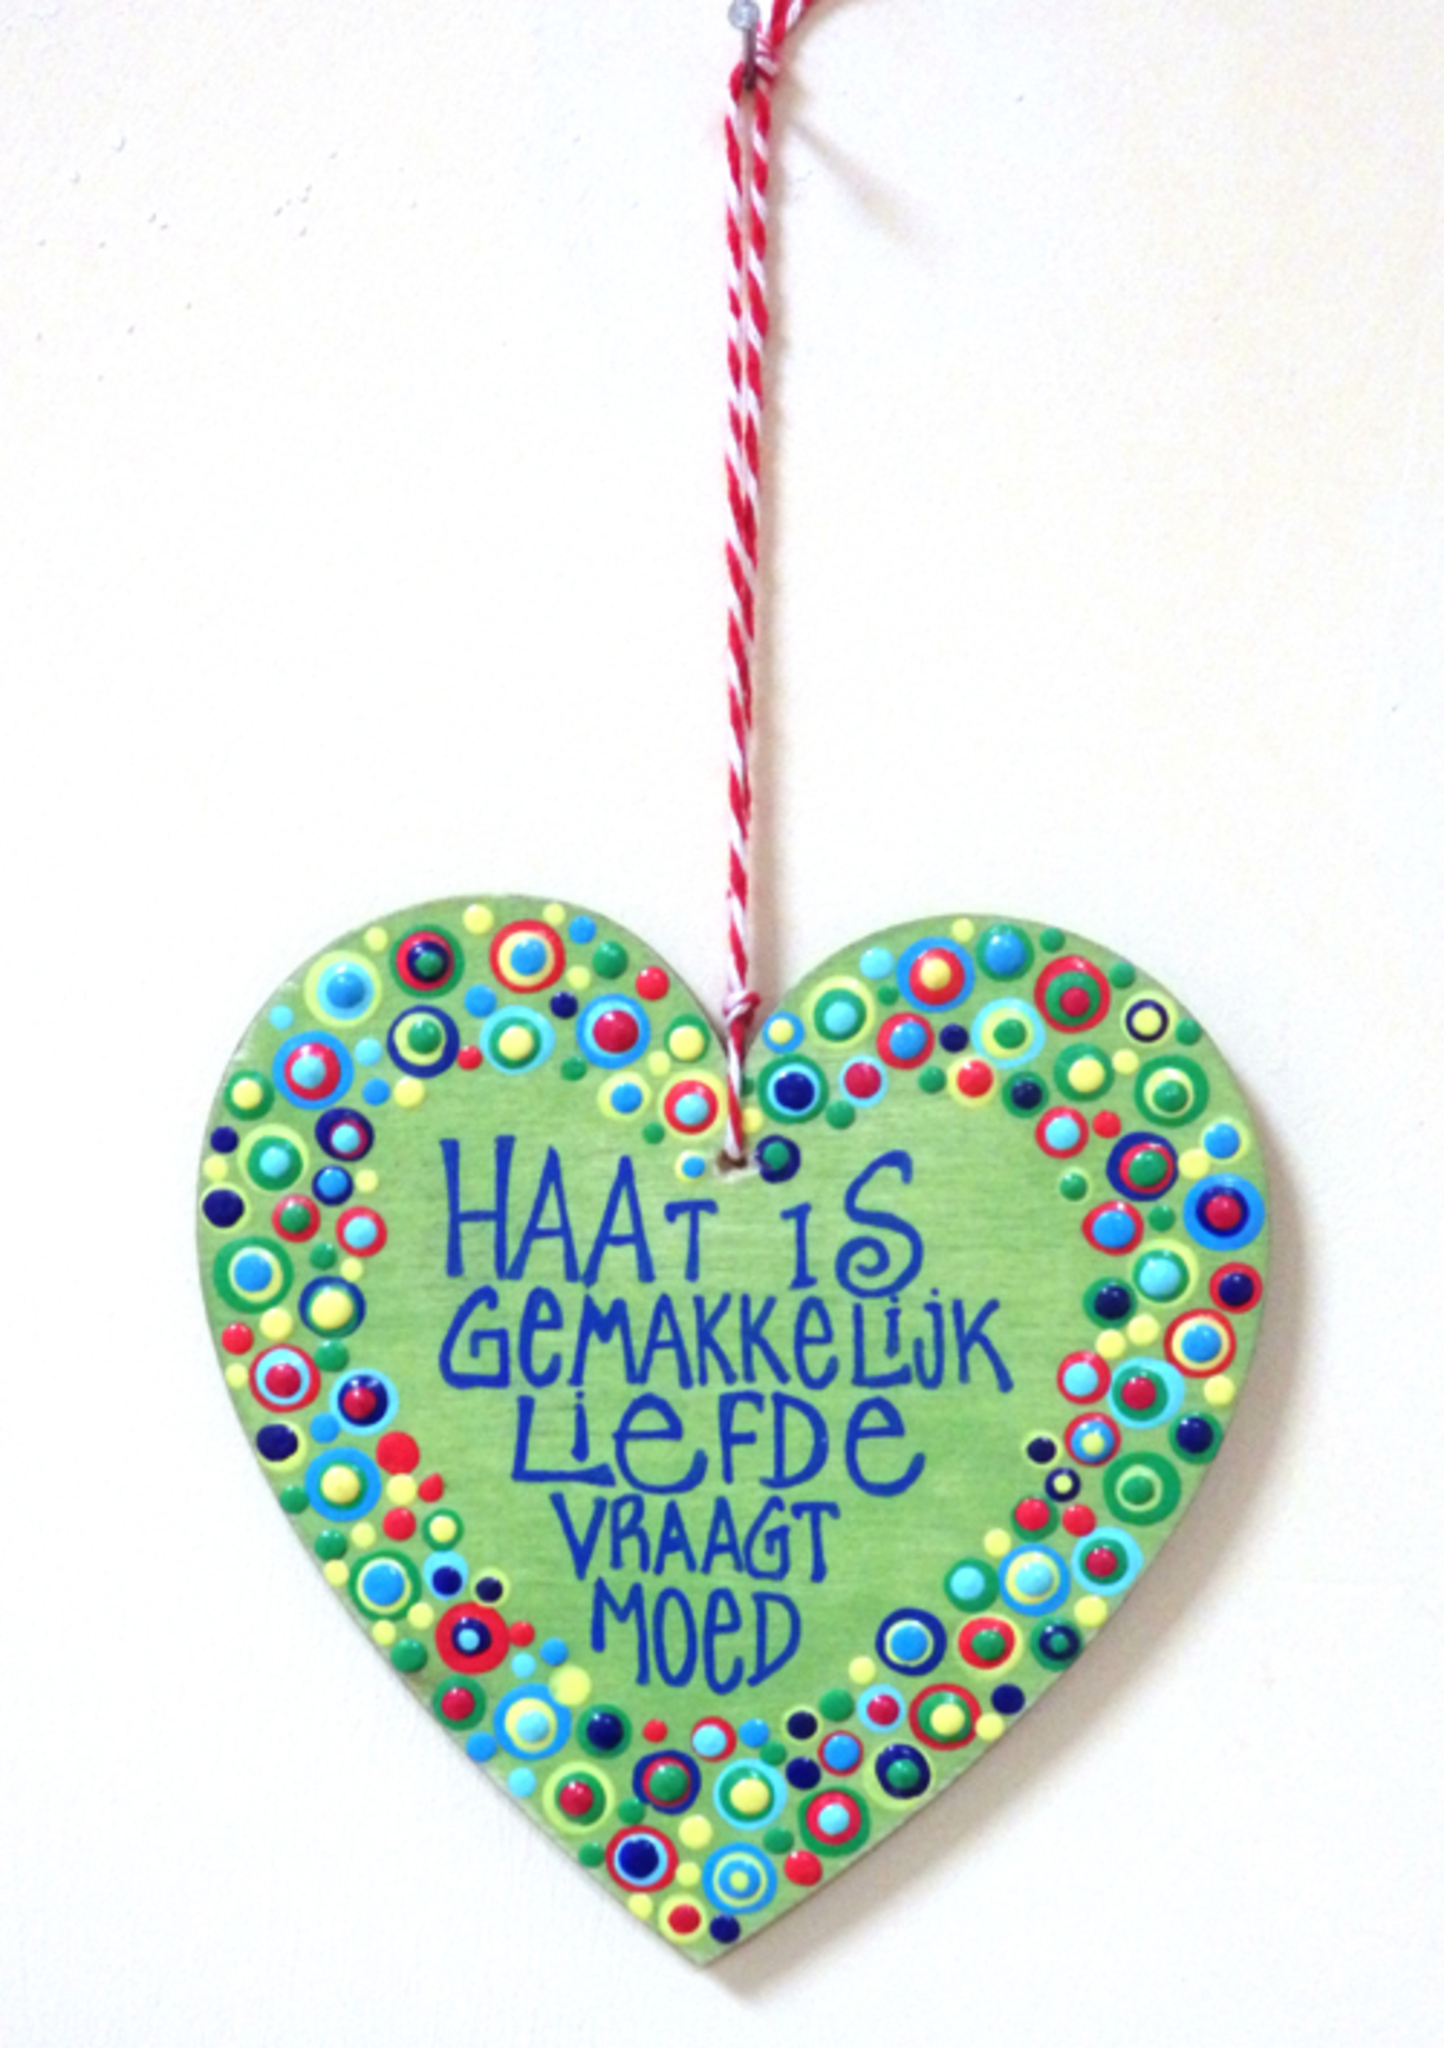 HAAT IS
GEMAKKELIJK
LIEFDE
VRAAGT
MOED